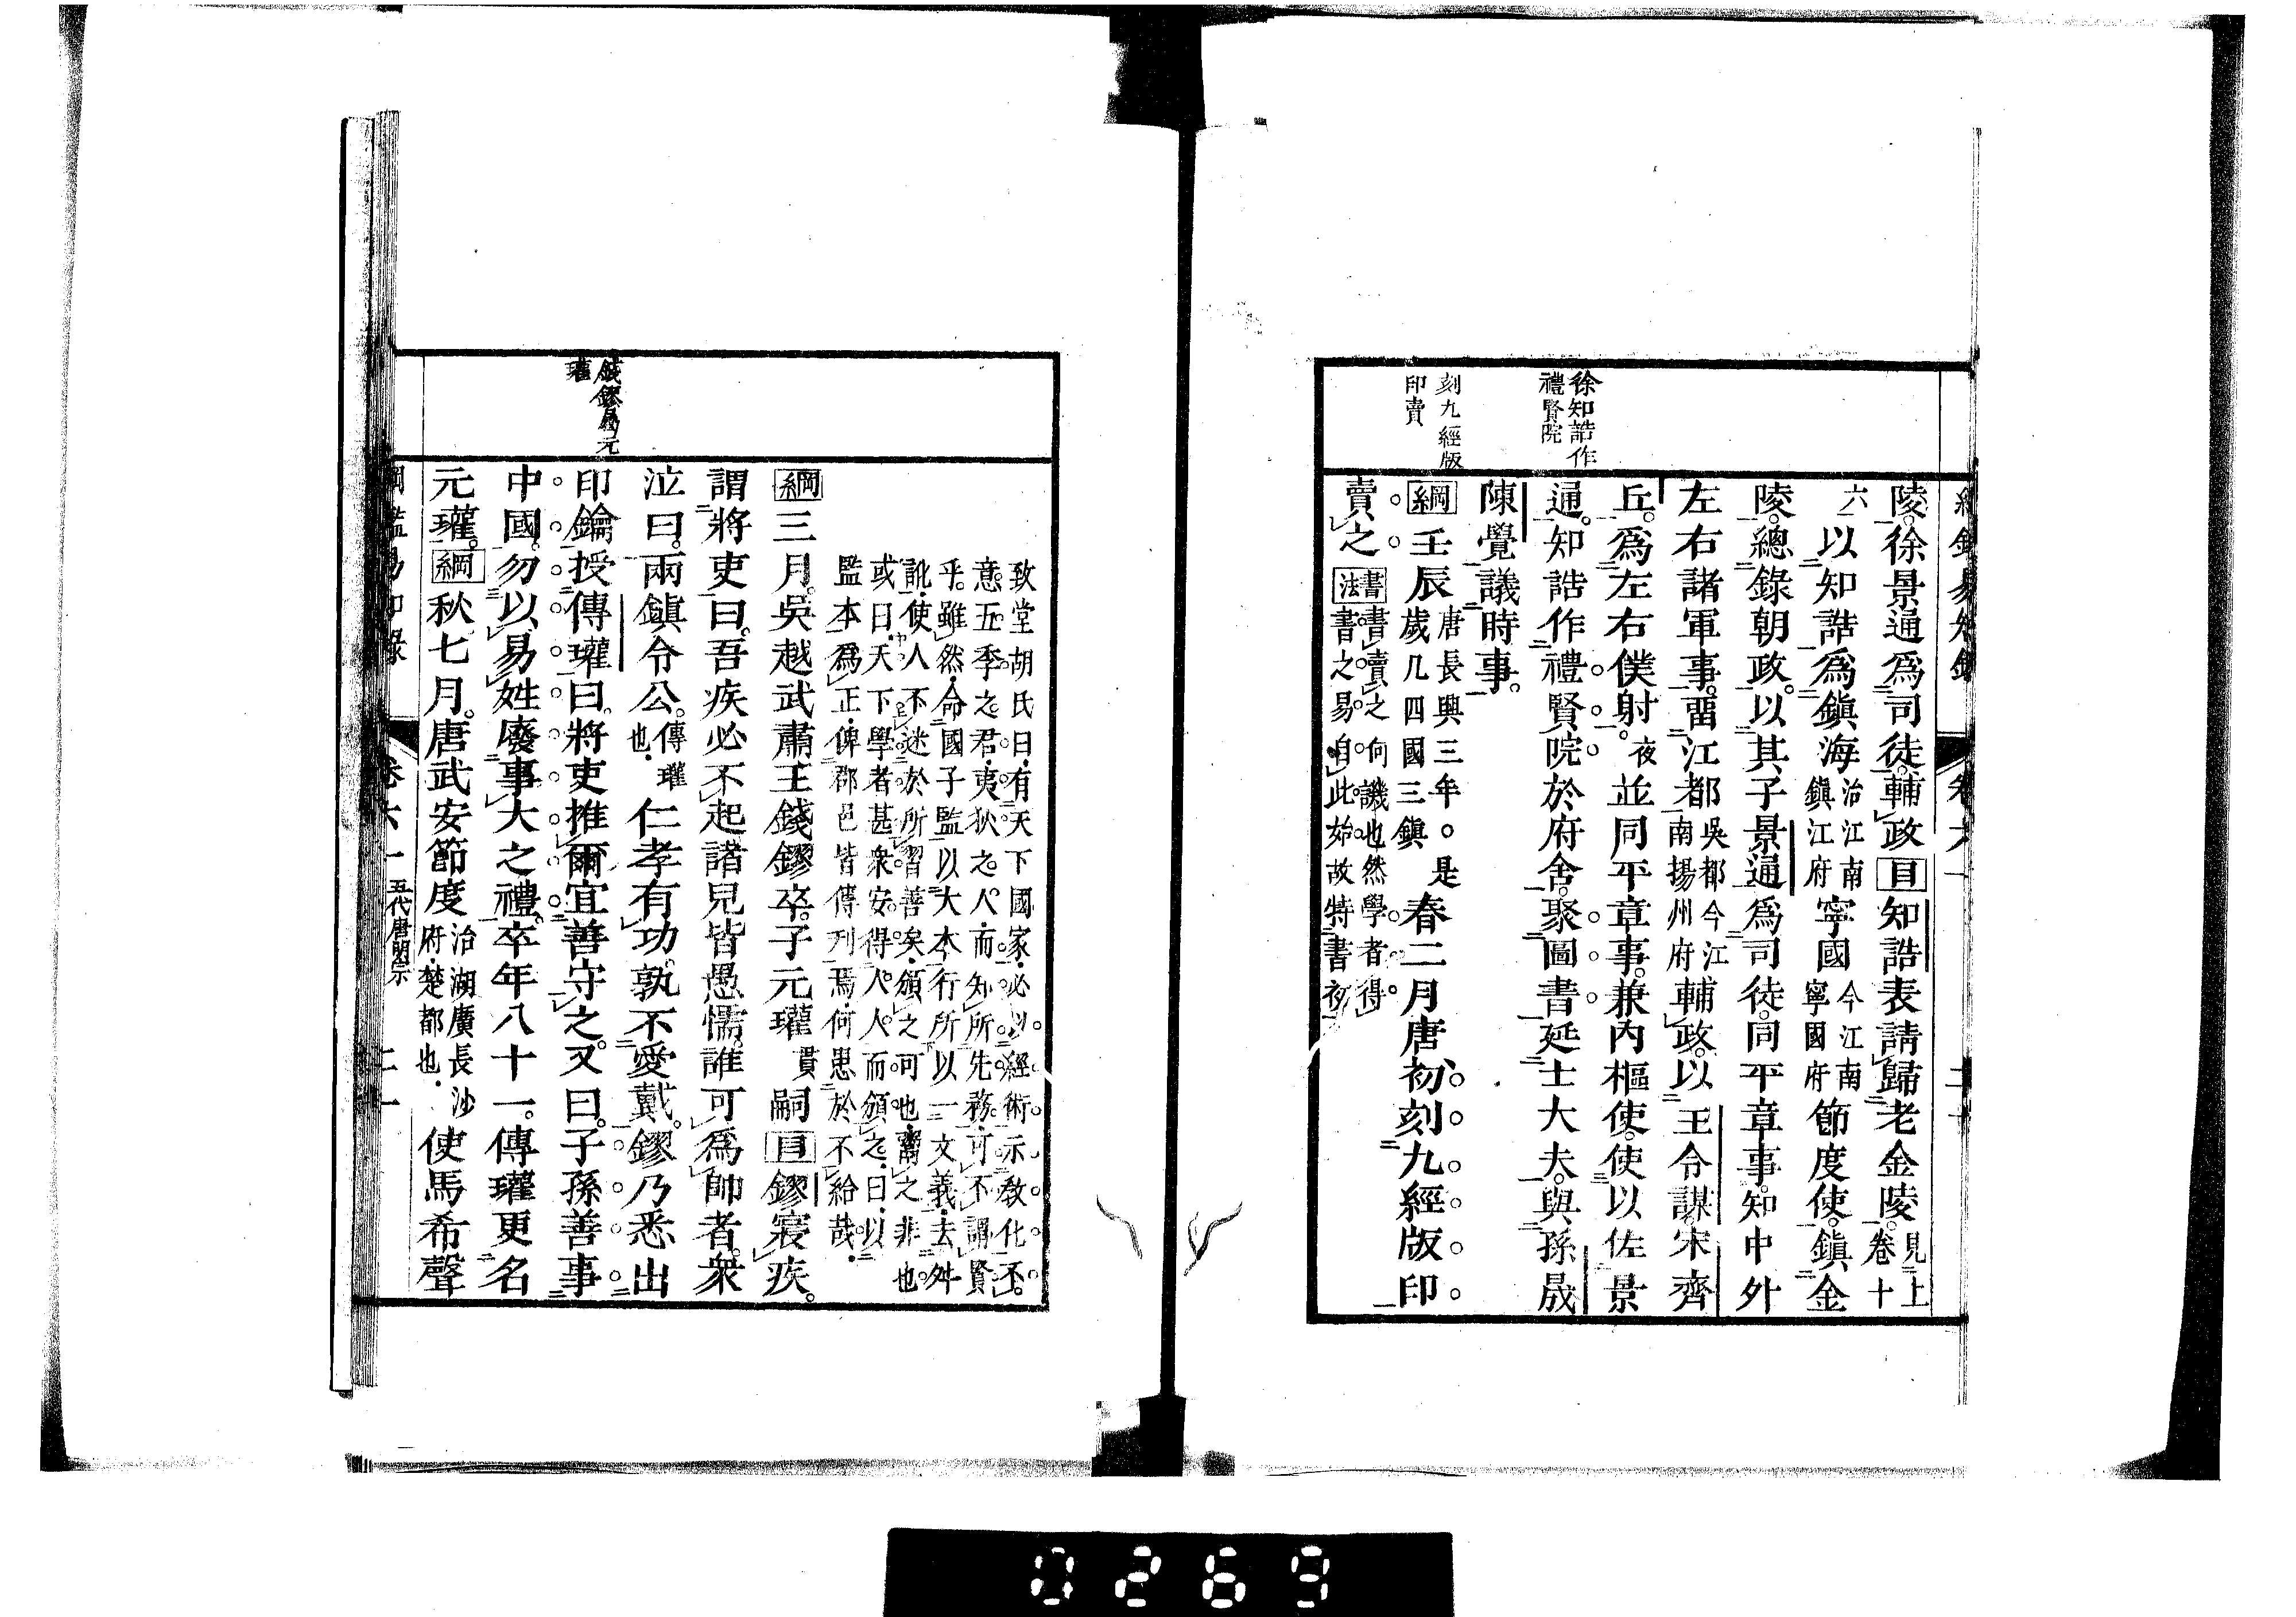 徐知誥作
禮賢院
刻九經版
印賣
陵。徐景通爲司徒。輔政目知誥表請歸老金陵。見上卷十
六以知誥爲鎭海治江南鎭江府寧國今江南寧國府節度使。鎭金
陵。總錄朝政。以其子景通爲司徒。同平章事。知中外
左右諸軍事。畱江都吳都今江南揚州府輔政。以王令謀。宋齊
丘。爲左右僕射。夜並同平章事。兼內樞使。使以佐景
通。知誥作禮賢院於府舍。聚圖書延士大夫。與孫晟
陳覺議時事。
綱壬辰唐長興三年。是歲凡四國三鎭春二月唐初刻九經版印
賣之書法書賣之何譏也然學者得書之易自此始故特書
卷六十一
二十
致堂胡氏曰有天下國家必以經術示教化不
意五季之君夷狄之人而知所先務可不謂賢
乎。雖然命國子監以大本行所以一文義去舛
訛使人不迷於所習善矣頒之可也鬻之非也
或曰天下學者甚衆安得人人而頒之曰以
監本爲正俾郡邑皆傳刊焉何患於不給哉
綱三月。吳越武肅王錢鏐卒。子元瓘貫嗣目鏐寢疾。
謂將吏曰。吾疾必不起諸兒皆愚懦。誰可爲帥者。衆
泣曰。兩鎭令公。傳瓘也仁孝有功。孰不愛戴。鏐乃悉出
印鑰授傳瓘曰。將吏推爾宜善守之。又曰。子孫善事
中國。勿以易姓廢事大之禮。卒年八十一。傳瓘更名
元瓘。綱秋七月。唐武安節度治湖廣長沙府楚都也使馬希聲
錢鏐
元
瓘
五代唐明宗